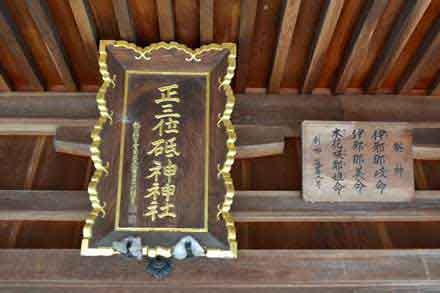 正三位砥神神社
祭神
伊邪那岐命
伊邪那美命
木花咲耶姫命